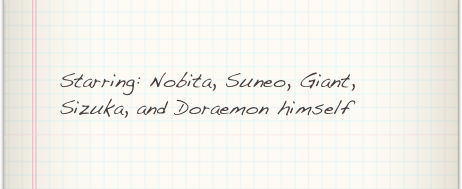 Starring: Nobita, Suneo, Giant,
Sizuka, and Doraemon himself